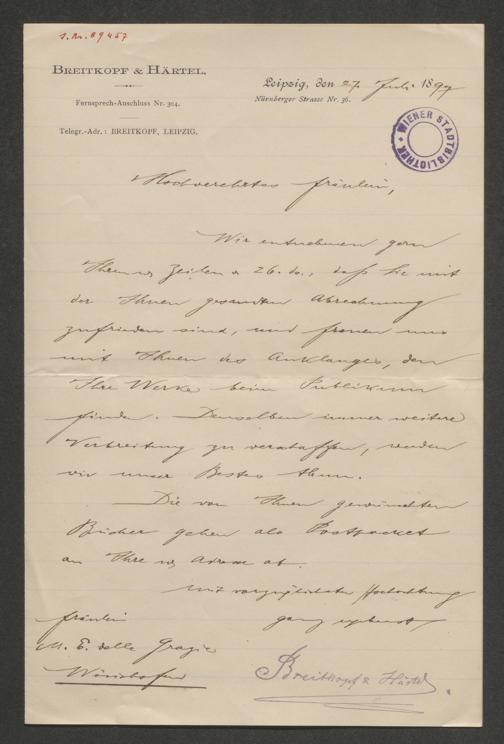 I.N. 89457
BREITKOPF & HÄRTEL.
Leipzig, den 27. Juli 1897
Nürnberger Strasse Nr. 36.
Fernsprech-Anschluss Nr. 304.
Telegr.-Adr.: BREITKOPF, LEIPZIG.
WIENER STADTBIBLIOTHEK
Hochverehrtes Fräulein,
Wir entnehmen gern
Ihren Zeilen v 26. do., daß Sie mit
der Ihnen gesandten Abrechnung
zufrieden sind, und freuen uns
mit Ihnen des Anklanges, den
Ihre Werke beim Publikum
finden. Denselben immer weitere
Verbreitung zu verschaffen, werden
wir unser Bestes thun.
Die von Ihnen gewünschten
Bücher gehen als Postpacket
an Ihre Adresse ab.
Mit vorzüglichster Hochachtung
ganz ergebenst
Fräulein
M. E. delle Grazie
Wörishofen
Breitkopf & Härtel.